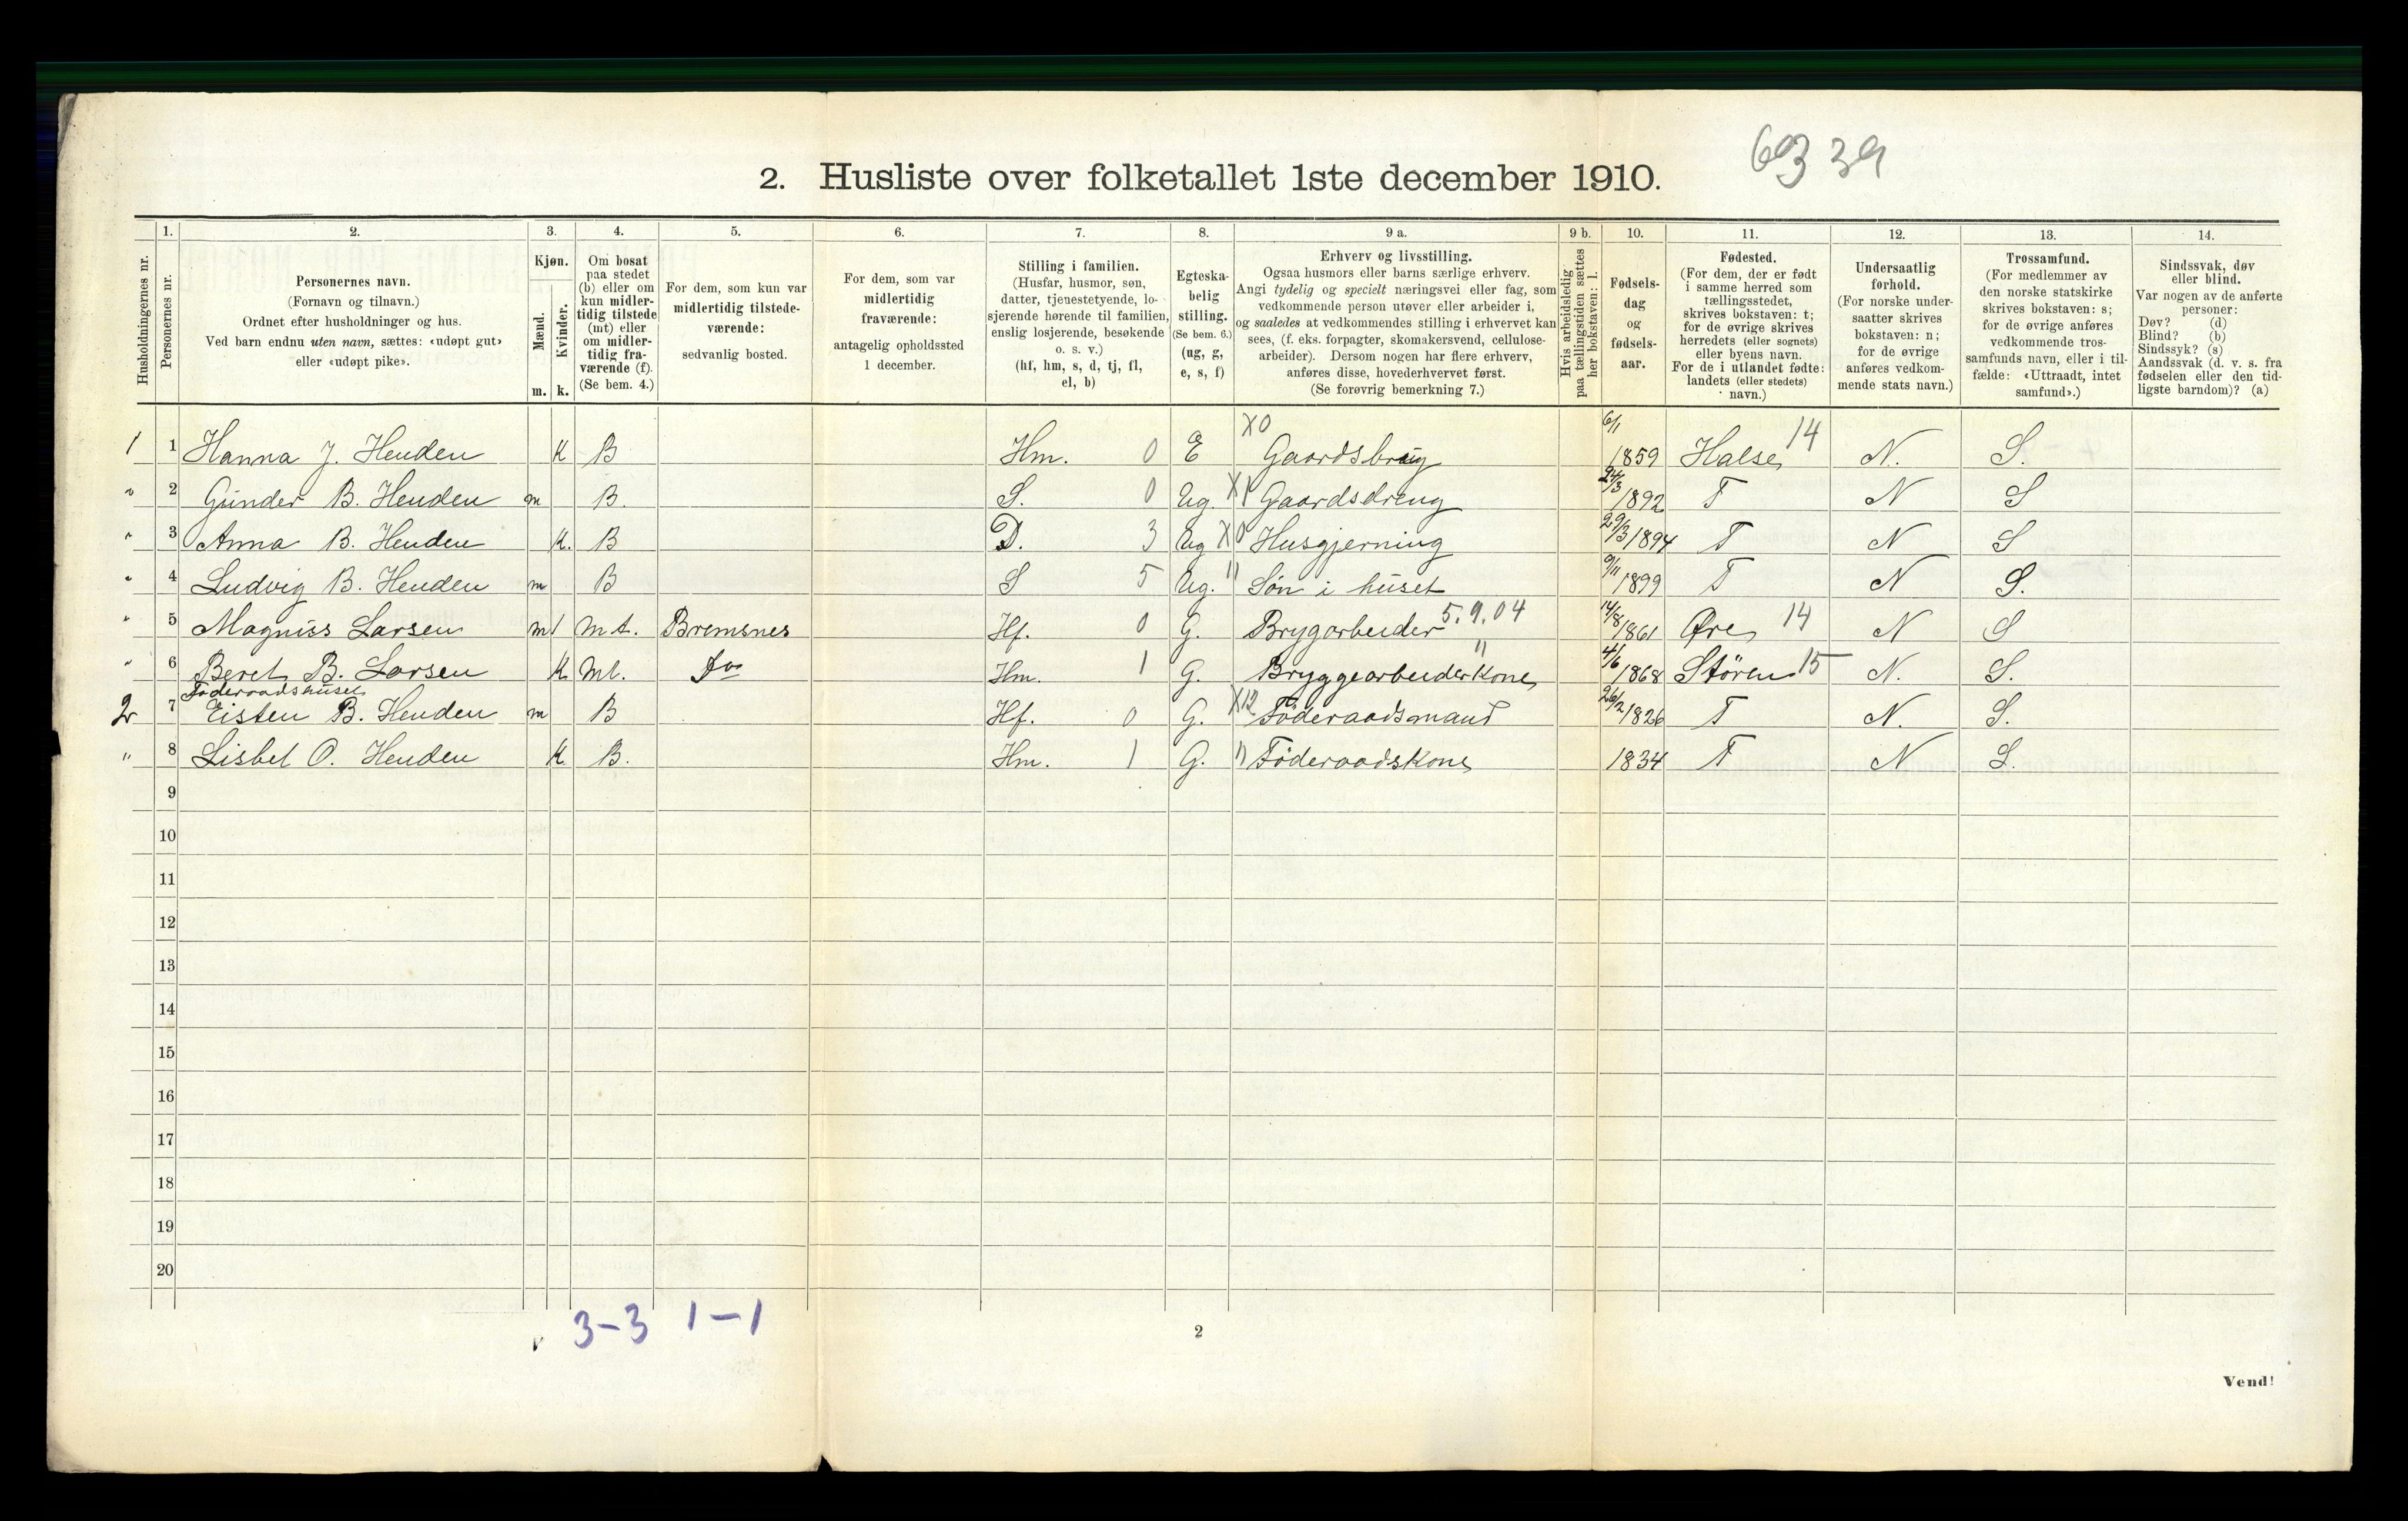 693 39
2. Husliste over folketallet 1ste december 1910.
1. 2. 3. 4. 5. 6. 7. 8. 9 a. 9 b. 10. 11. 12. 13. 14.
Husholdningernes nr.
Personernes nr.
Personernes navn.
(Fornavn og tilnavn.)
Ordnet efter husholdninger og hus.
Ved barn endnu uten navn, sættes: «udøpt gut»
eller «udøpt pike».
Kjøn.
Mænd.
Kvinder.
m. k.
Om bosat
paa stedet
(b) eller om
kun midler-
tidig tilstede
(mt) eller
om midler-
tidig fra-
værende (f).
(Se bem. 4.)
For dem, som kun var
midlertidig tilstede-
værende:
sedvanlig bosted.
For dem, som var
midlertidig
fraværende:
antagelig opholdssted
1 december.
Stilling i familien.
(Husfar, husmor, søn,
datter, tjenestetyende, lo-
sjerende hørende til familien,
enslig losjerende, besøkende
o. s. v.)
(hf, hm, s, d, tj, fl,
el, b)
Egteska-
belig
stilling.
(Se bem. 6.)
(ug, g,
e, s, f)
Erhverv og livsstilling.
Ogsaa husmors eller barns særlige erhverv.
Angi tydelig og specielt næringsvei eller fag, som
vedkommende person utøver eller arbeider i,
og saaledes at vedkommendes stilling i erhvervet kan
sees, (f. eks. forpagter, skomakersvend, cellulose-
arbeider). Dersom nogen har flere erhverv,
anføres disse, hovederhvervet først.
(Se forøvrig bemerkning 7.)
Hvis arbeidsledig
paa tællingstiden sættes
her bokstaven: l.
Fødsels-
dag
og
fødsels-
aar.
Fødested.
(For dem, der er født
i samme herred som
tællingsstedet,
skrives bokstaven: t;
for de øvrige skrives
herredets (eller sognets)
eller byens navn.
For de i utlandet fødte:
landets (eller stedets)
navn.)
Undersaatlig
forhold.
(For norske under-
saatter skrives
bokstaven: n;
for de øvrige
anføres vedkom-
mende stats navn.)
Trossamfund.
(For medlemmer av
den norske statskirke
skrives bokstaven: s;
for de øvrige anføres
vedkommende tros-
samfunds navn, eller i til-
fælde: «Uttraadt, intet
samfund».)
Sindssvak, døv
eller blind.
Var nogen av de anførte
personer:
Døv? (d)
Blind? (b)
Sindssyk? (s)
Aandssvak (d. v. s. fra
fødselen eller den tid-
ligste barndom)? (a)
1 1 Hanna J. Henden K B Hm. 0 E X0 Gaardsbrug 6/1 1859 Halse 14 N. S.
" 2 Gunder B. Henden m B. S. 0 Ug. X1 Gaardsdreng 24/3 1892 T N S
" 3 Anna B. Henden K. B D. 3 Ug X0 Husgjerning 29/3 1894 T N S
" 4 Ludvig B. Henden m B S 5 Ug. " Søn i huset 9/11 1899 T N S.
" 5 Magnus Larsen m1 mt. Bremsnes Hf. 0 G. Brygarbeider 5.9.04 14/8 1861 Øre 14 N S
" 6 Beret B. Larsen K Mt. Do Hm. 1 G. Bryggearbeiderkone " 4/6 1868 Støren 15 N. S.
Føderaadshuset
2 7 Eisten B. Henden m B Hf. 0 G. X12 Føderaadsmand 26/2 1826 T N. S.
" 8 Lisbet O. Henden K B. Hm. 1 G. " Føderaadskone 1834 T N S.
9
10
11
12
13
14
15
16
17
18
19
20
3-3 1-1
2
Vend!